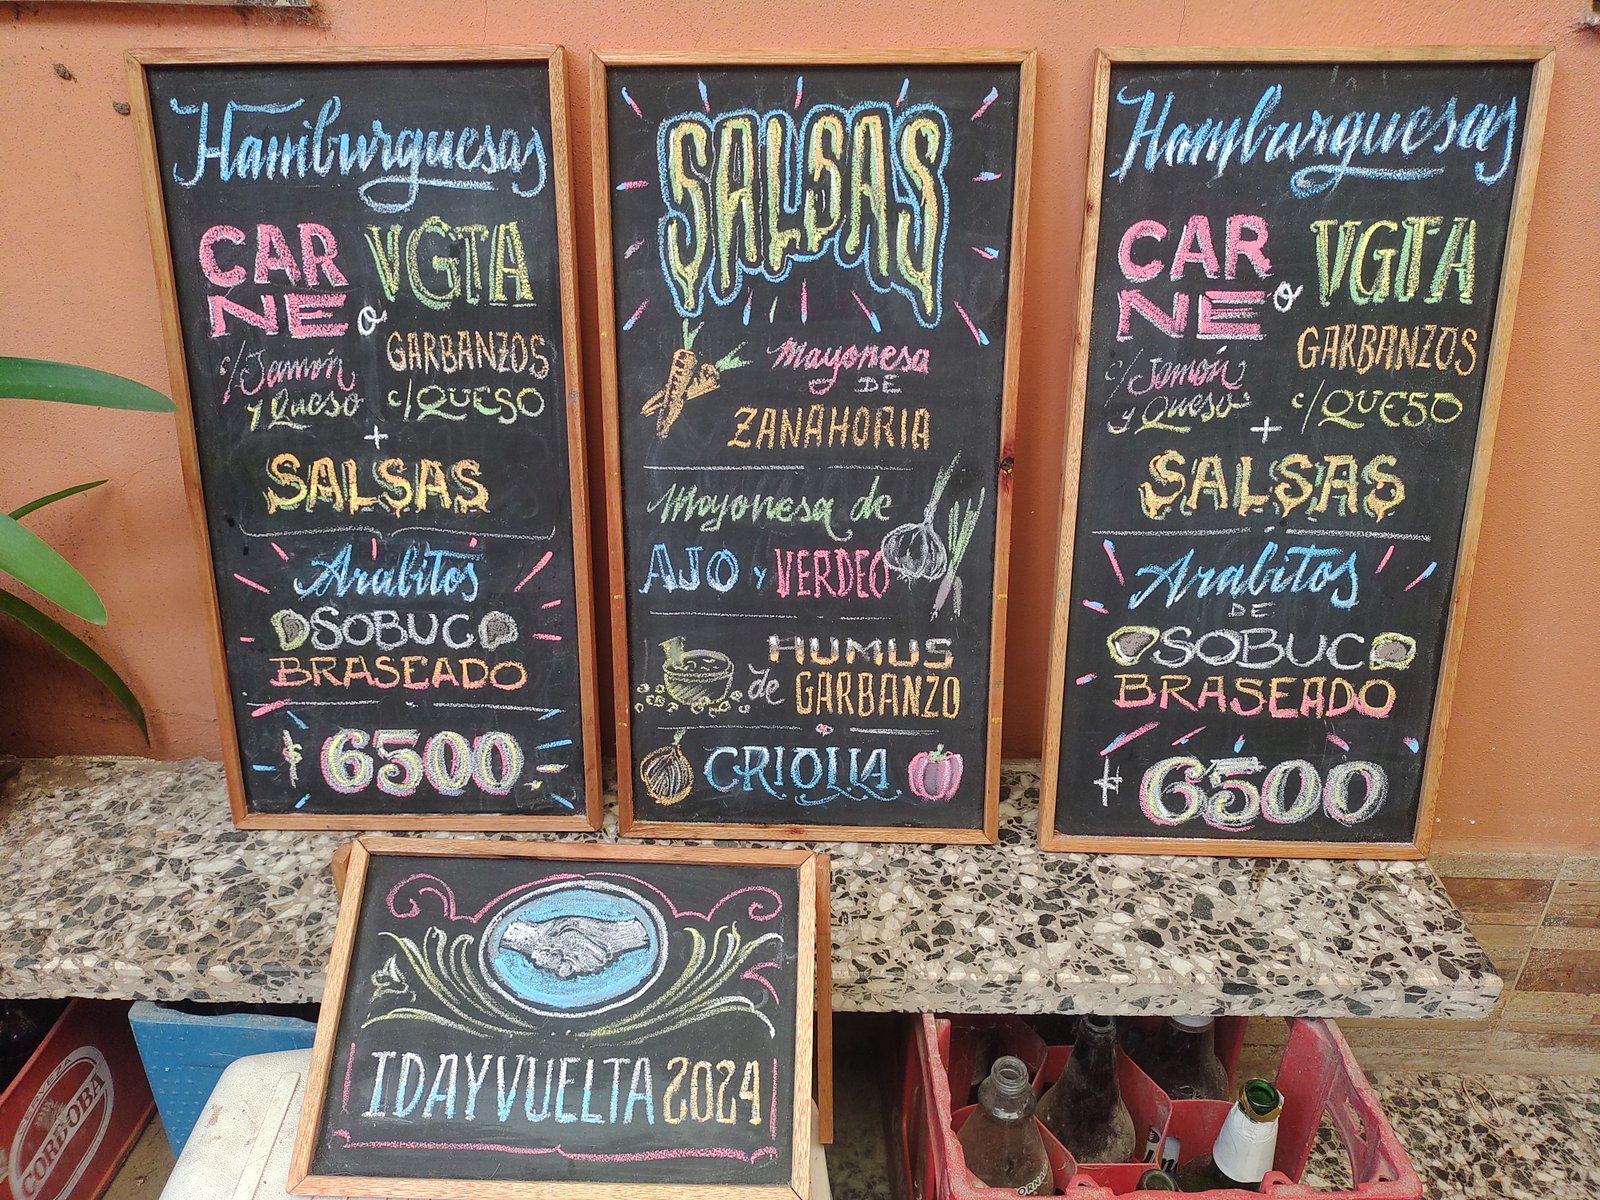 Hamburguesas
CAR
NE
o
VGTA
GARBANZOS
c/QUESO
c/Jamón
y Queso
+
SALSAS
Arabitos
OSOBUCO
BRASEADO
$ 6500
SALSAS
Mayonesa
DE
ZANAHORIA
Mayonesa de
AJO Y VERDEO
HUMUS
de GARBANZO
CRIOLLA
Hamburguesas
CAR
NE
o
VGTA
GARBANZOS
c/QUESO
c/Jamón
y Queso
+
SALSAS
Arabitos
DE
OSOBUCO
BRASEADO
$ 6500
IDAYVUELTA 2024
CORDOBA